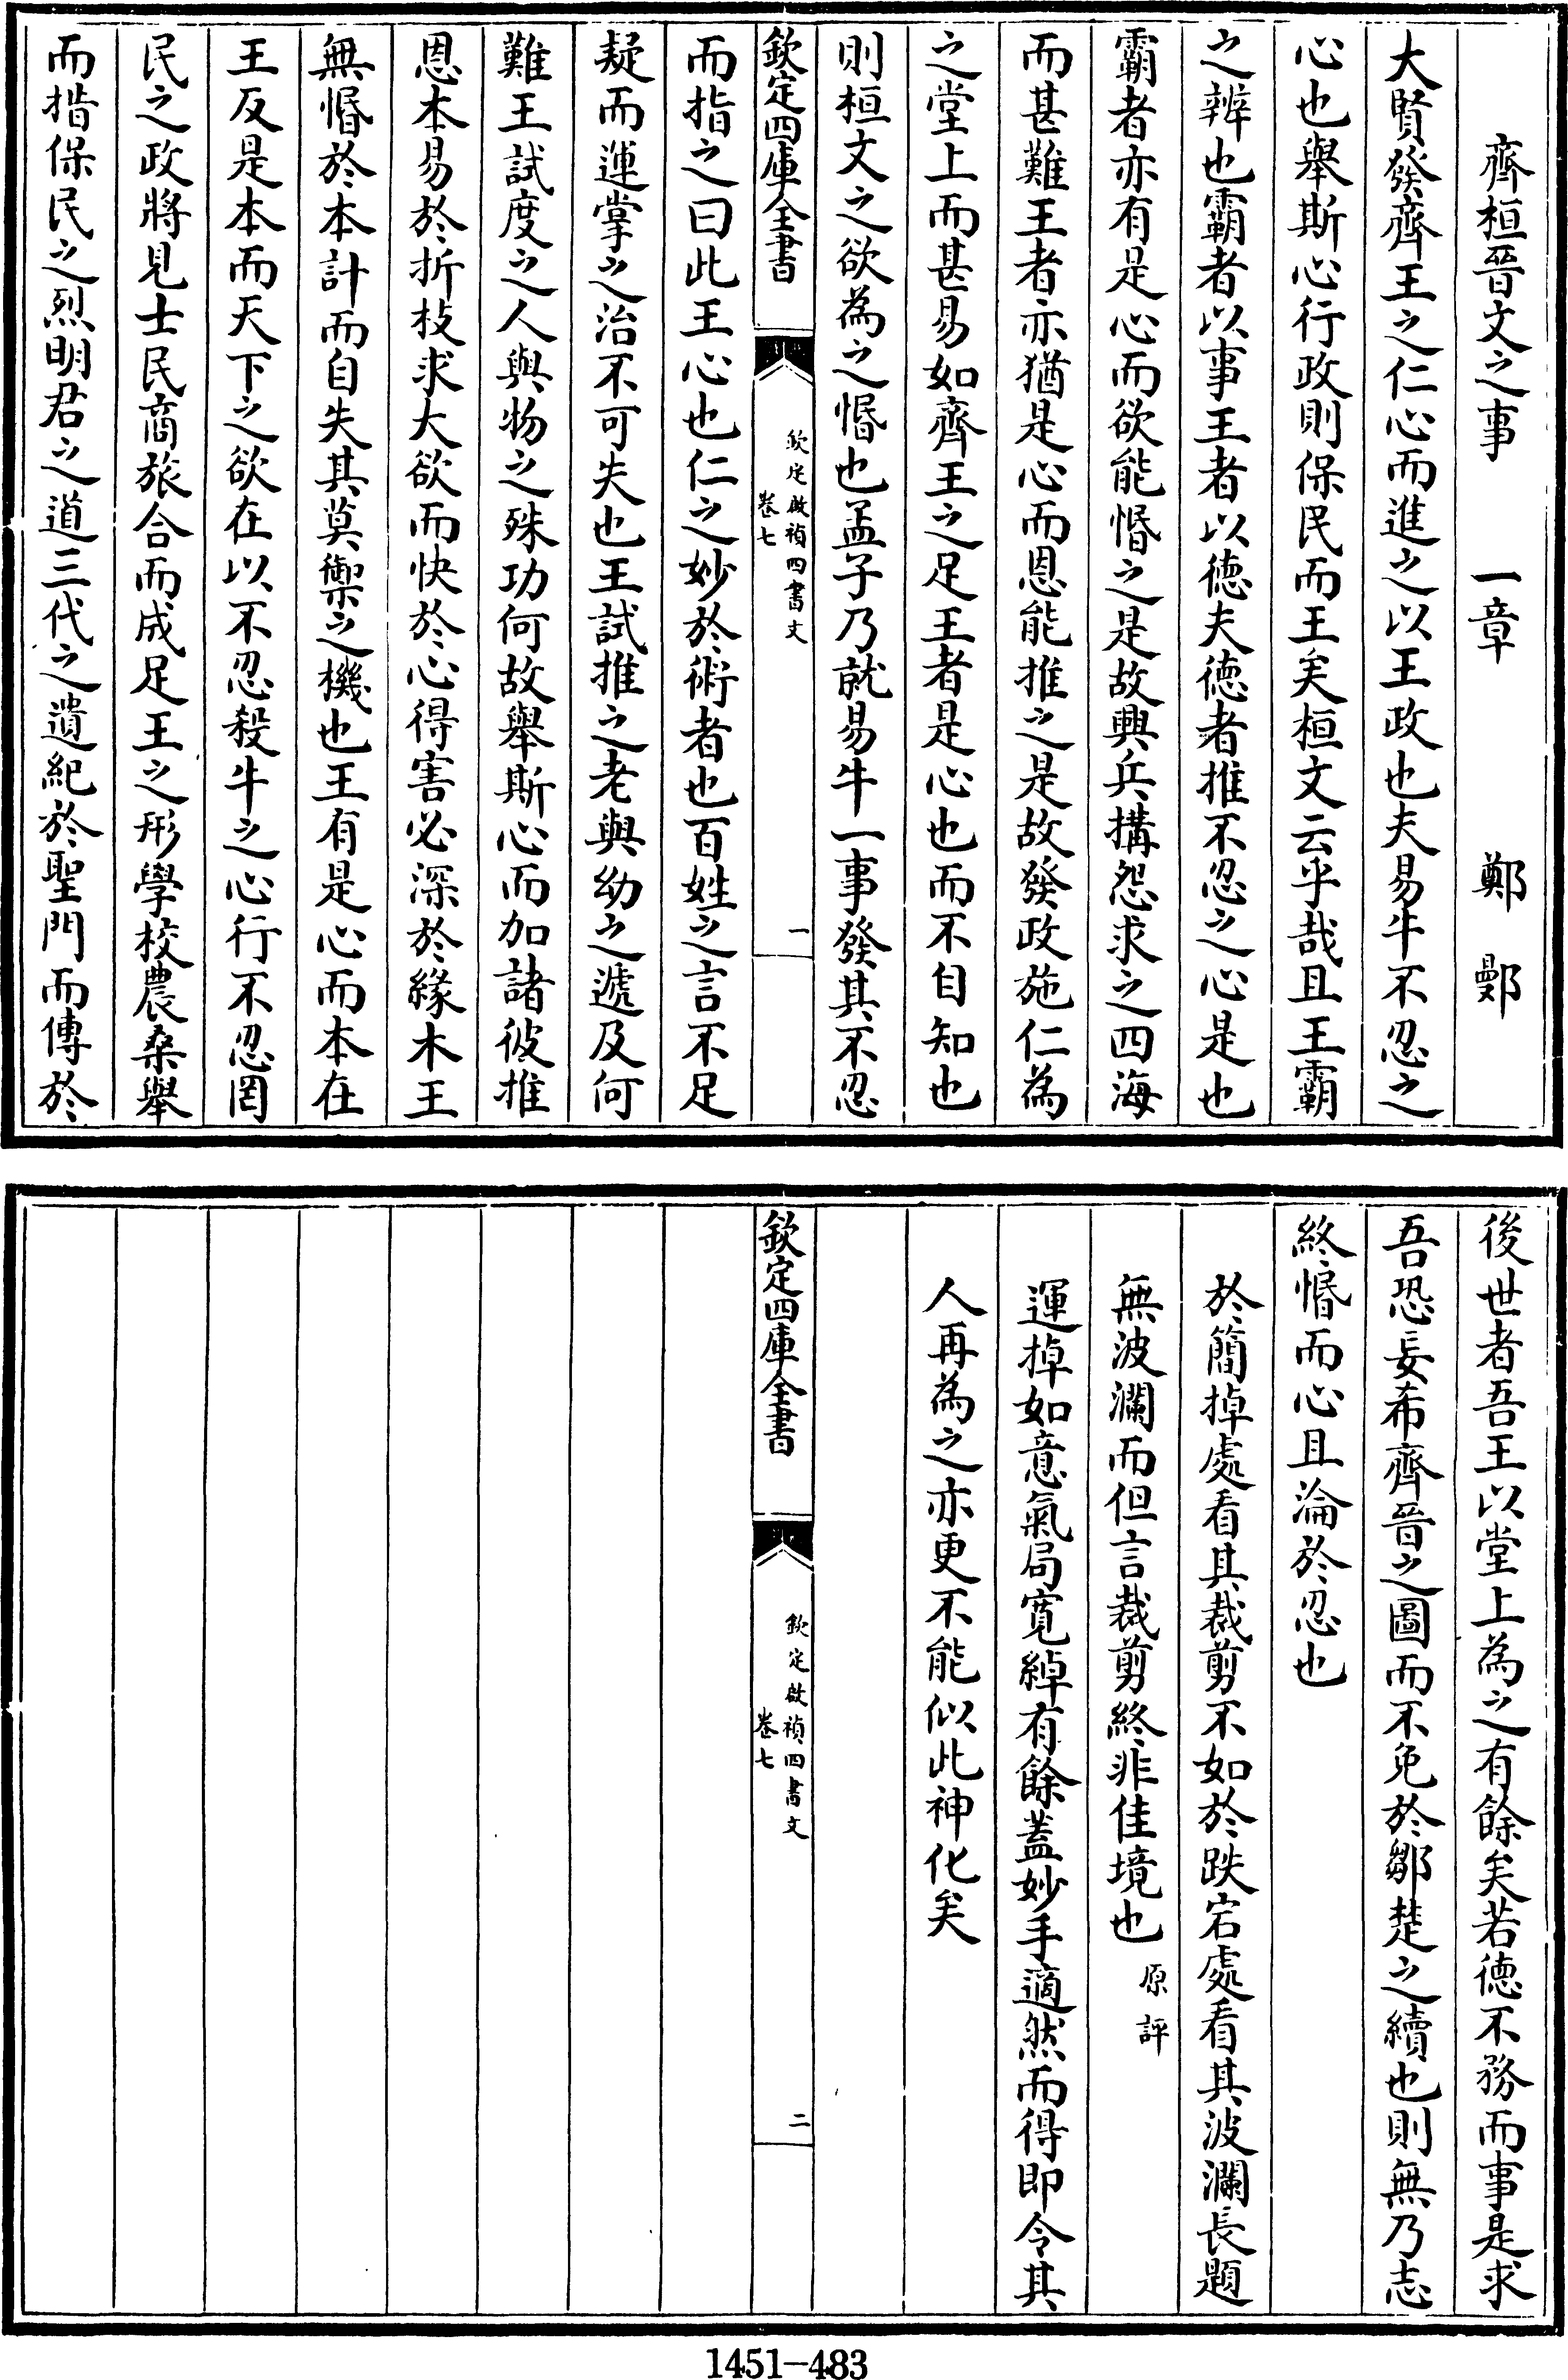 齊桓晉文之事　一章　鄭鄤
大賢發齊王之仁心而進之以王政也夫易牛不忍之
心也舉斯心行政則保民而王矣桓文云乎哉且王霸
之辨也霸者以事王者以德夫德者推不忍之心是也
霸者亦有是心而欲能惛之是故興兵搆怨求之四海
而甚難王者亦猶是心而恩能推之是故發政施仁為
之堂上而甚易如齊王之足王者是心也而不自知也
則桓文之欲為之惛也孟子乃就易牛一事發其不忍
欽定四庫全書
欽定啟禎四書文
卷七
一
而指之曰此王心也仁之妙於術者也百姓之言不足
疑而運掌之治不可失也王試推之老與幼之遞及何
難王試度之人與物之殊功何故舉斯心而加諸彼推
恩本易於折枝求大欲而快於心得害必深於緣木王
無惛於本計而自失其莫禦之機也王有是心而本在
王反是本而天下之欲在以不忍殺牛之心行不忍罔
民之政將見士民商旅合而成足王之形學校農桑舉
而揩保民之烈明君之道三代之遺紀於聖門而傳於
後世者吾王以堂上為之有餘矣若德不務而事是求
吾恐妄希齊晉之圖而不免於鄒楚之續也則無乃志
終惛而心且淪於忍也
於簡掉處看其裁剪不如於跌宕處看其波瀾長題
無波瀾而但言裁剪終非佳境也原評
運掉如意氣局寬綽有餘蓋妙手適然而得即令其
人再為之亦更不能似此神化矣
欽定四庫全書
欽定啟禎四書文
卷七
二
1451-483